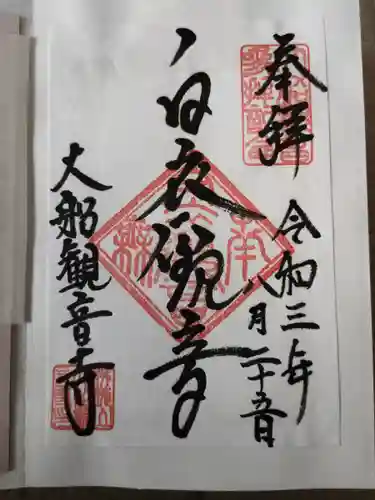 奉拝
令和三年
八月二十五日
白衣観音
大船観音寺